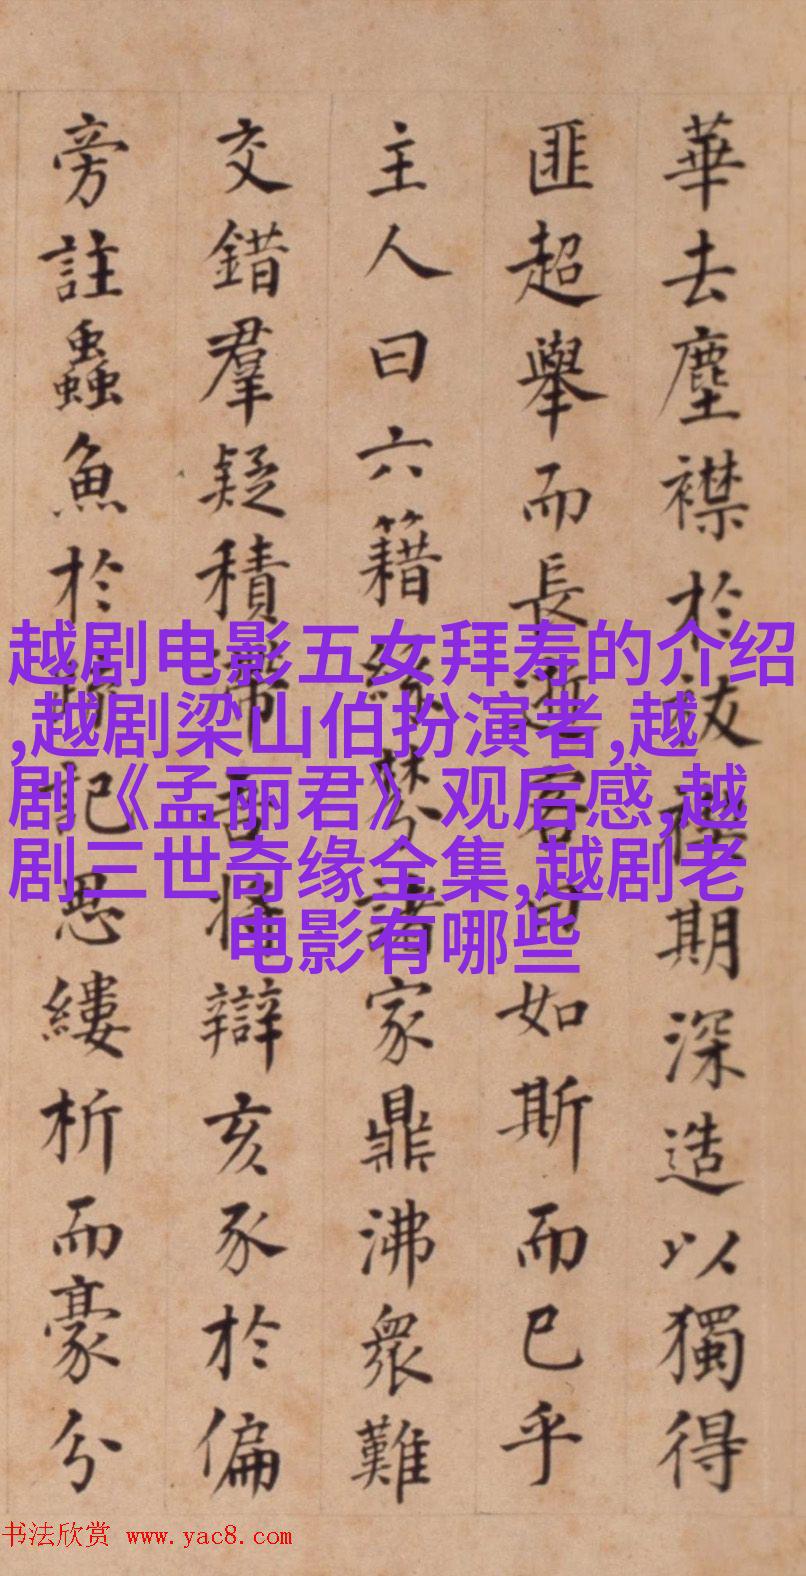 華去塵襟於禊期深造以獨得
匪超舉而長客曰如斯而已乎
主人曰六籍棼諸家鼎沸衆難
交錯羣疑積滯吾將辯亥豕於偏
旁註蟲魚於記思縷析而豪分
越剧电影五女拜寿的介绍
,越剧梁山伯扮演者,越
剧《孟丽君》观后感,越
剧三世奇缘全集,越剧老
电影有哪些
书法欣赏 www.yac8.com